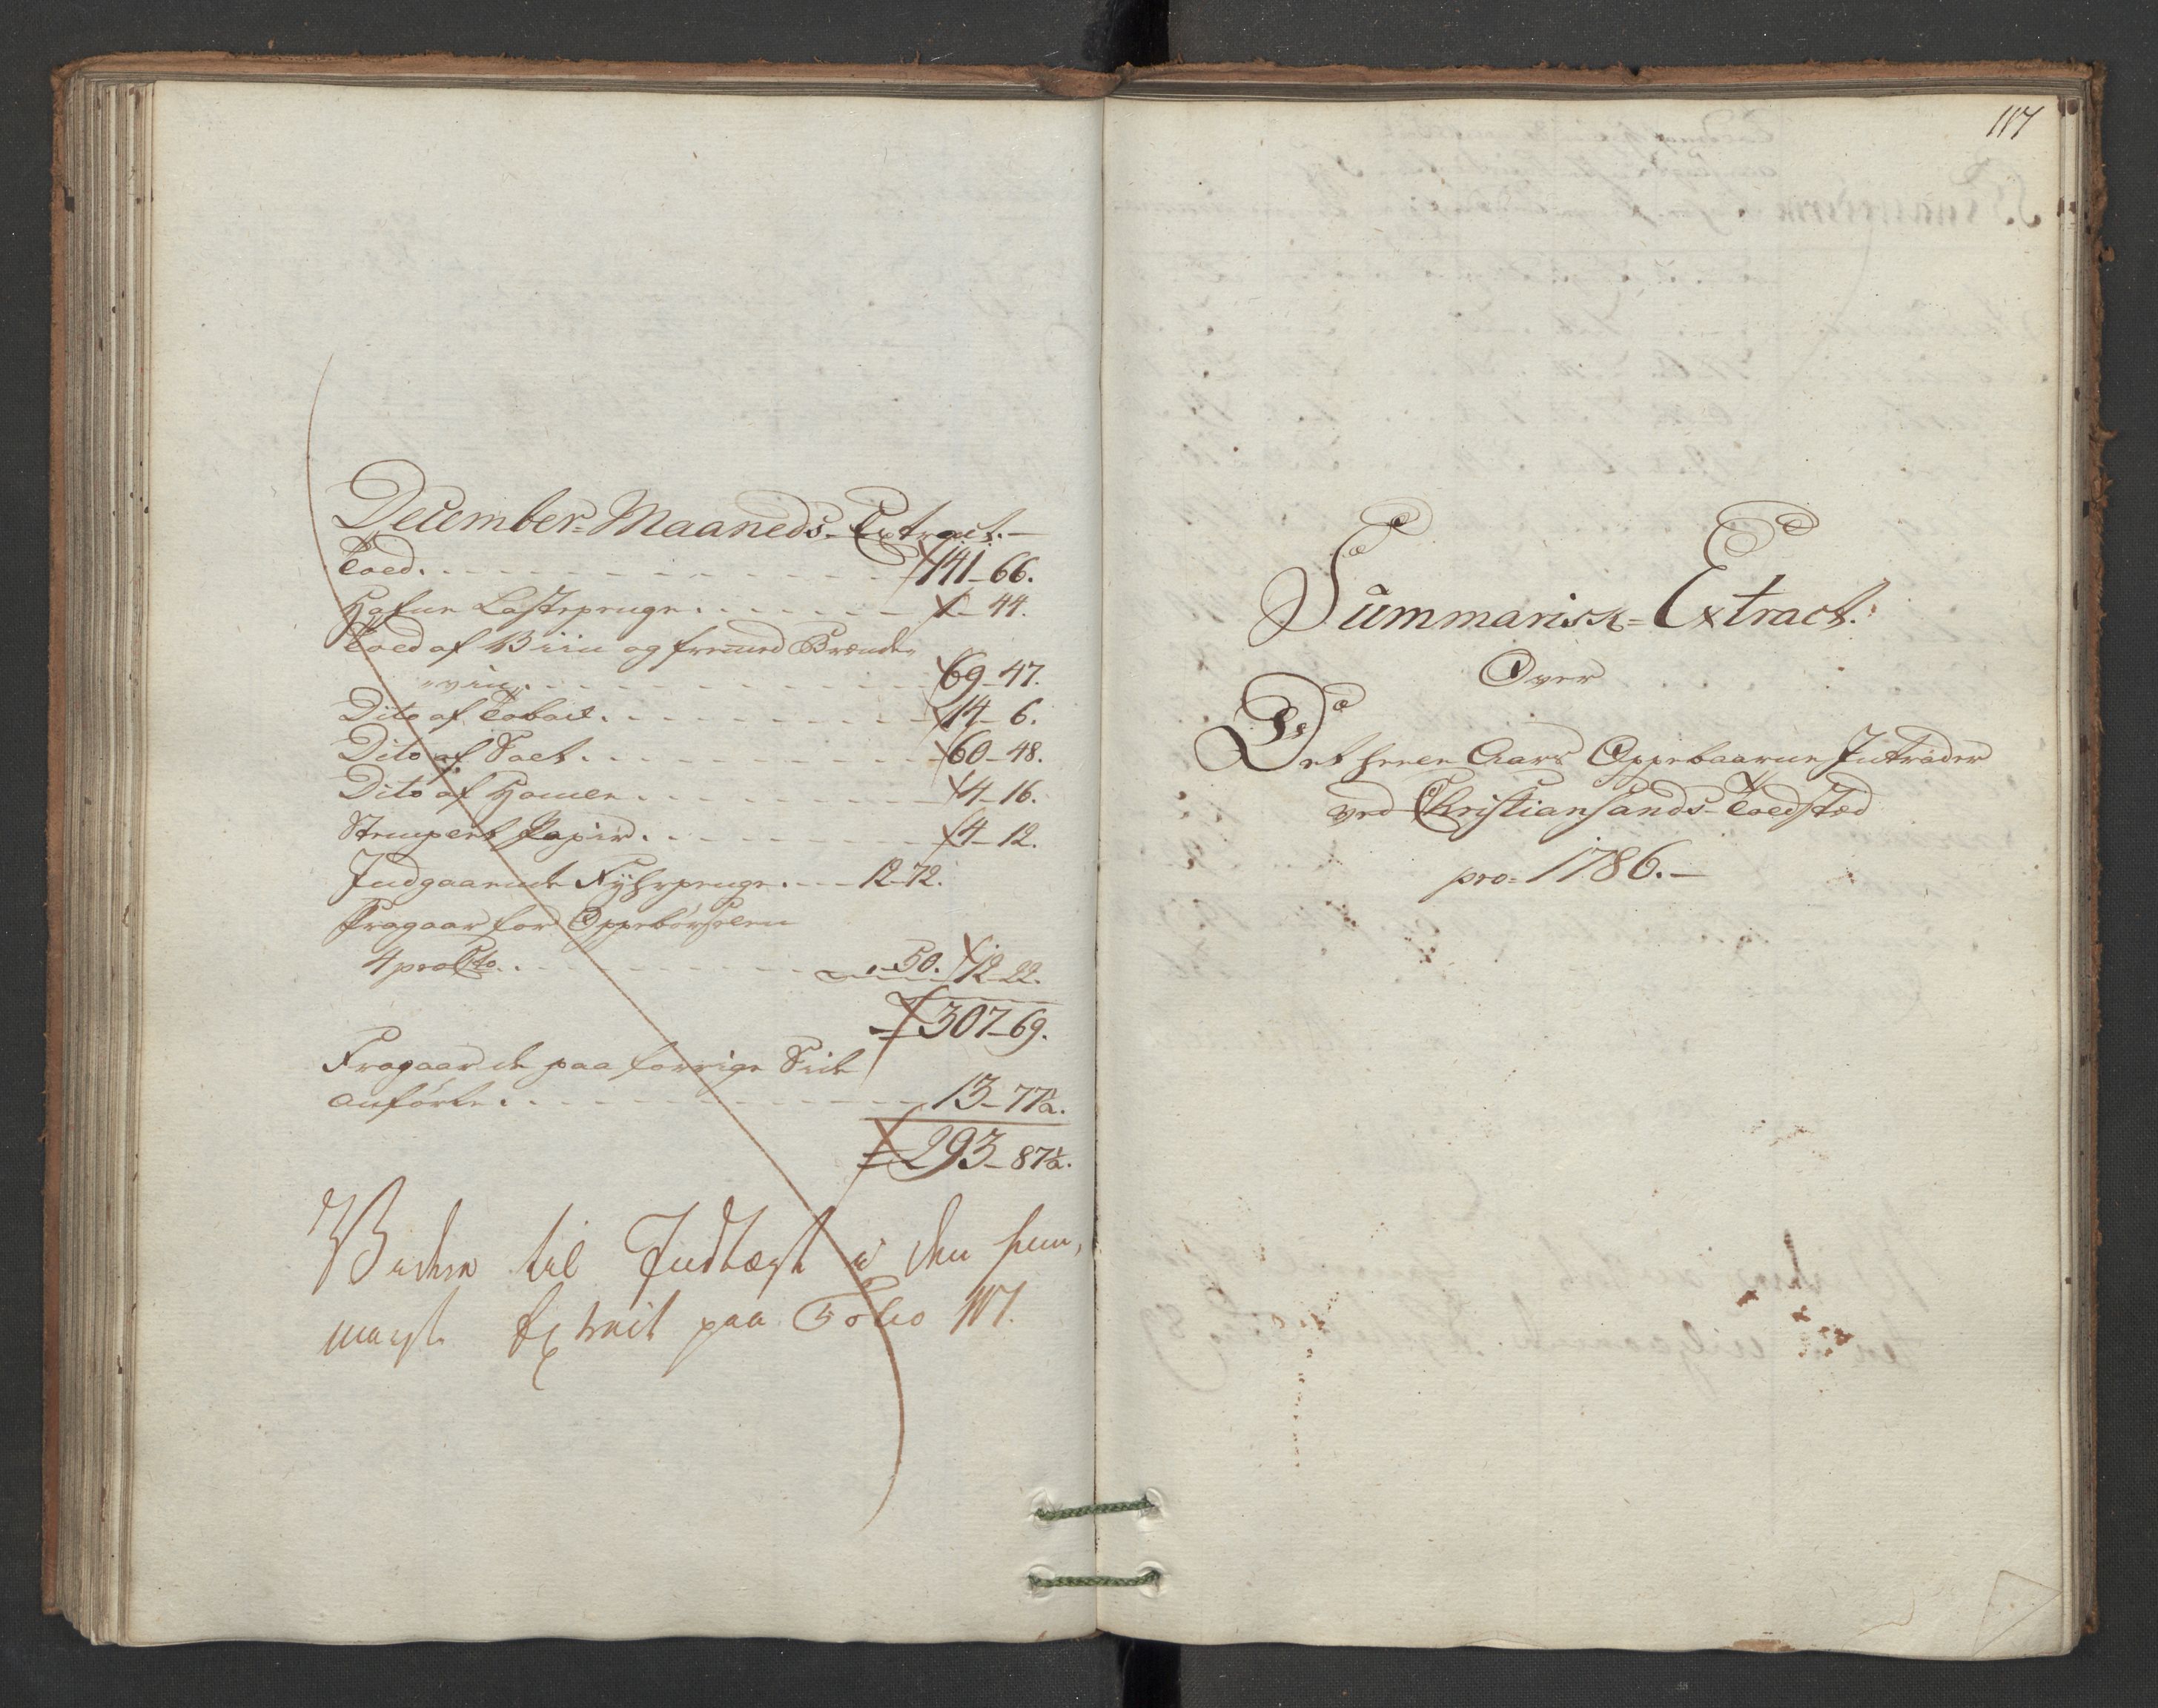 December-Maaneds-Extract.
Told. 141-66.
Hafne Lastepenge. 1-44.
Told af Viin og fremmed Brænde-
viin. 69-47.
Dito af Toback. 14-6.
Dito af Salt. 60-48.
Dito af Humle. 4-16.
Stemplet Papir. 4-12.
Indgaaende Fyhrpenge. 12-72.
Fragaar for Oppebørselen
4 pro Cto. -50. 12-22.
307-69.
Fragaar de paa forrige Side
anførte. 13-77½.
293-87½.
til Indtægt i den sum,
Extract paa Folio 117.
117
Summarisk-Extract.
Over
Det heele Aars Oppebaarne Intrader
ved Christiansands-Toldsted
pro 1786.